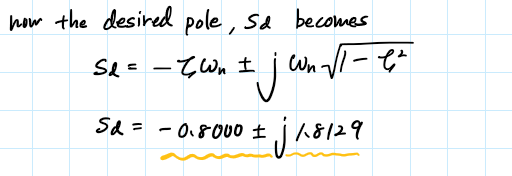 now the desired pole, Sd becomes
Sd = - ζωn ± j ωn √1 - ζ²
Sd = - 0.8000 ± j 1.8129